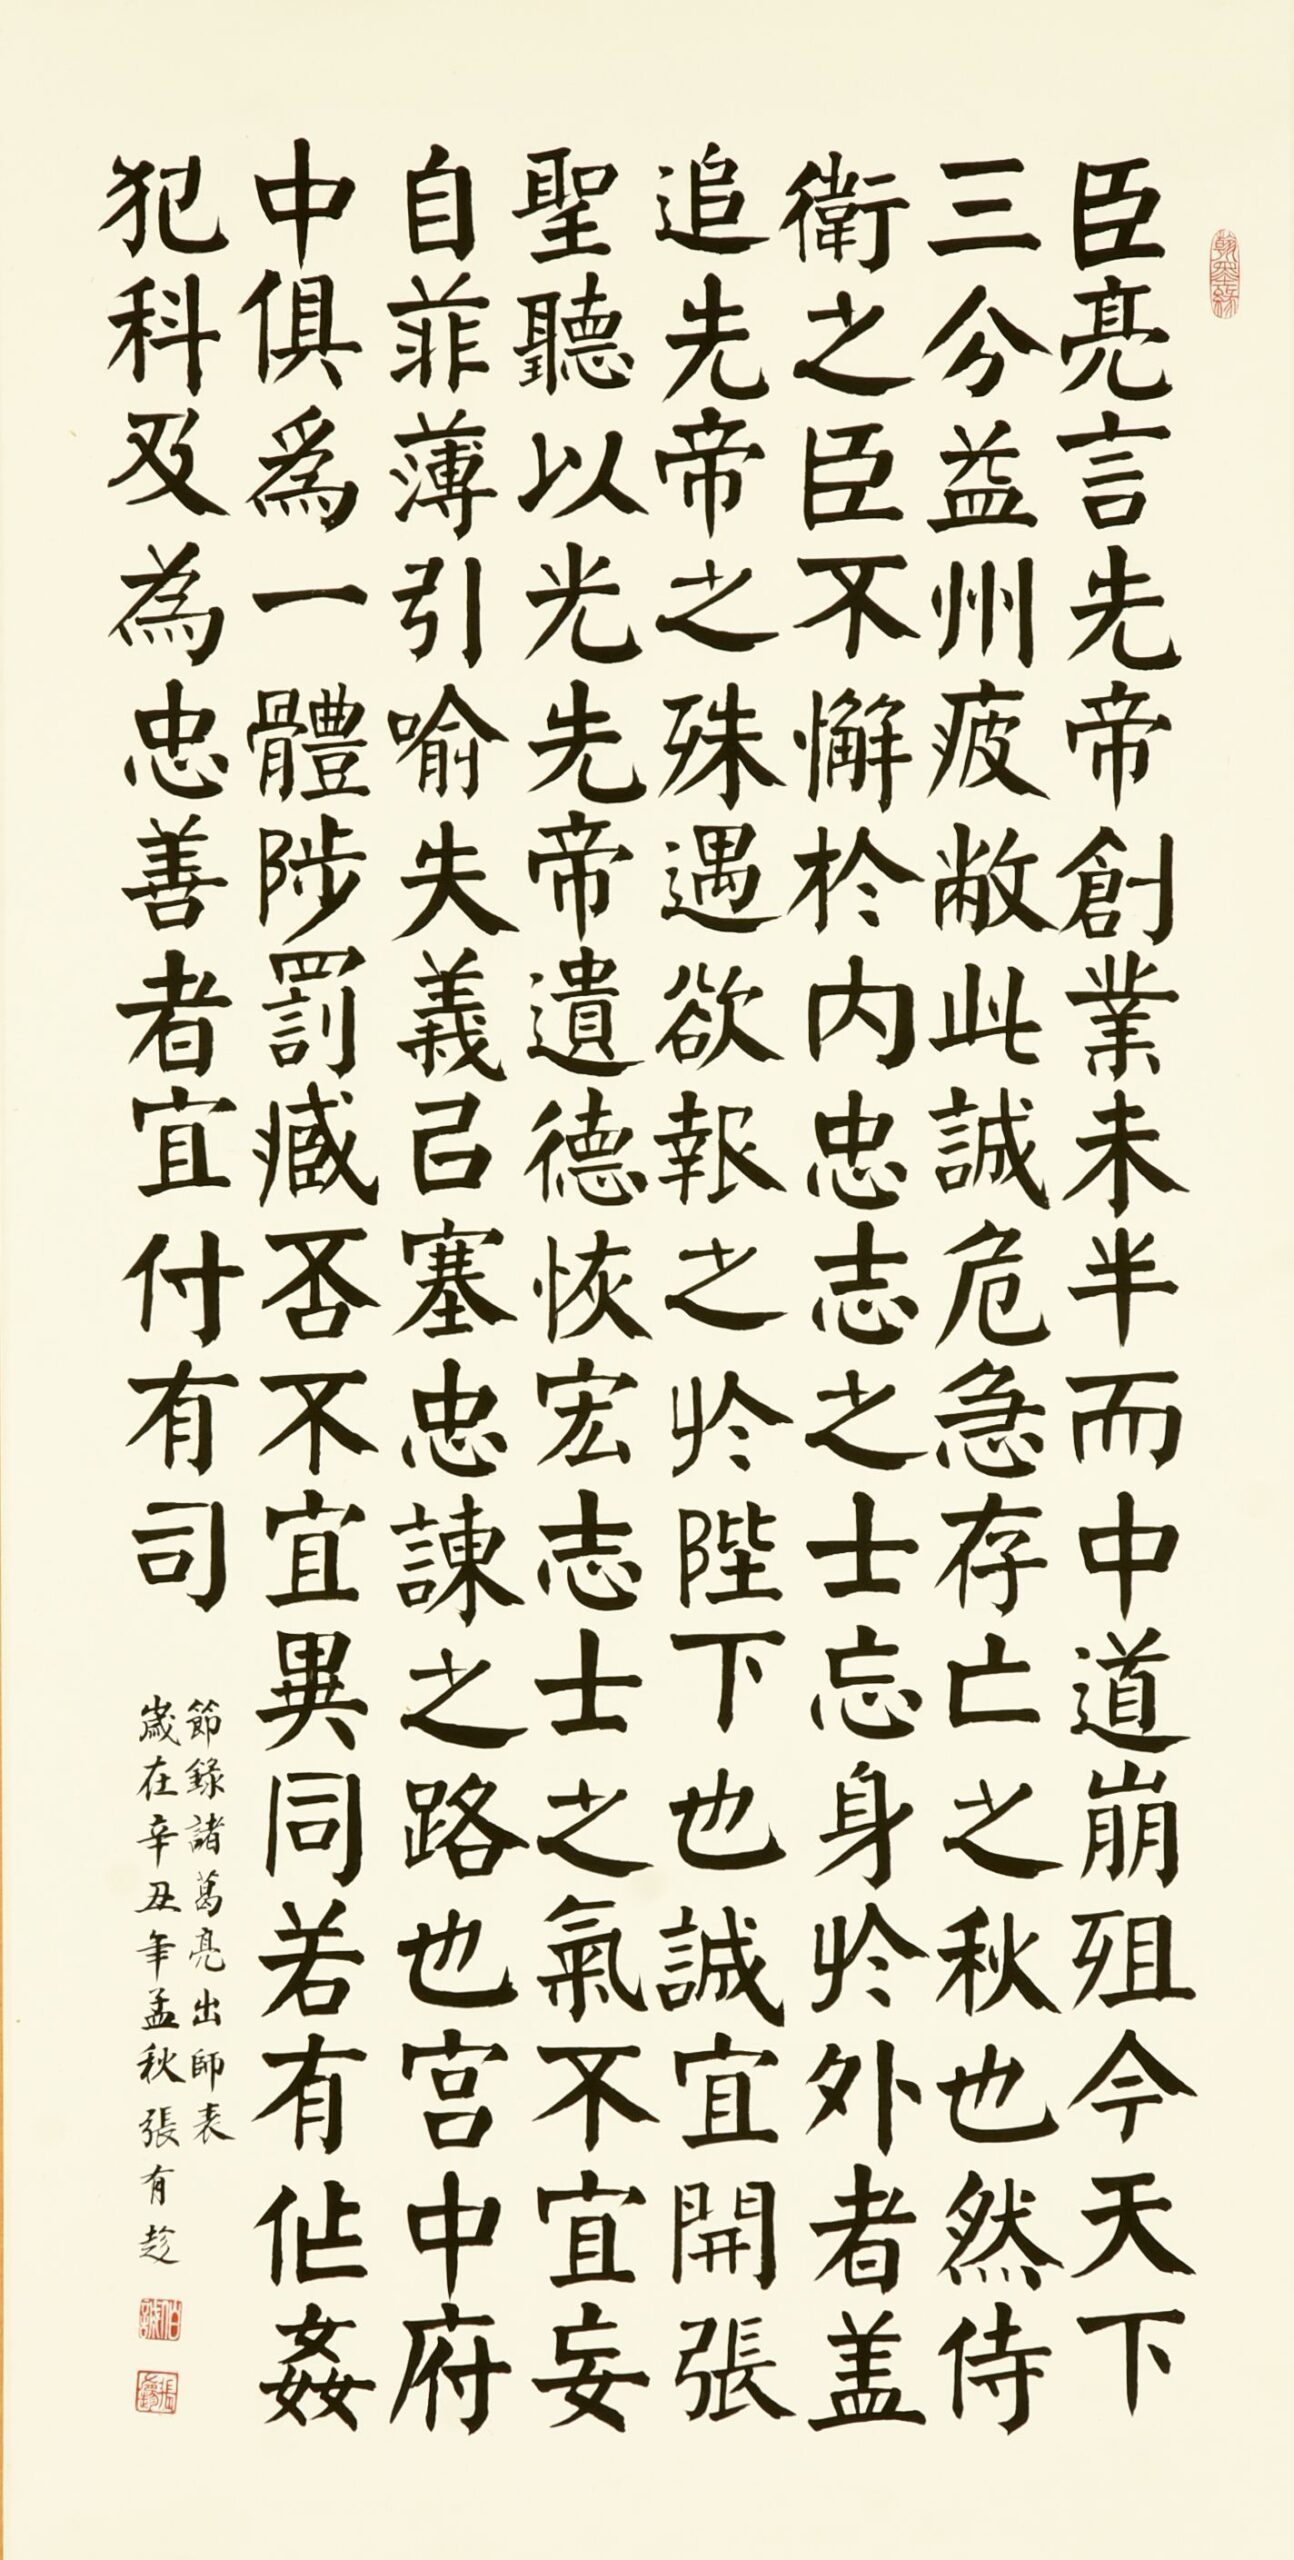 臣亮言先帝創業未半而中道崩殂今天下
三分益州疲敝此誠危急存亡之秋也然侍
衛之臣不懈於內忠志之士忘身於外者盖
追先帝之殊遇欲報之於陛下也誠宜開張
聖聽以光先帝遺德恢宏志士之氣不宜妄
自菲薄引喻失義㠯塞忠諫之路也宮中府
中俱為一體陟罰臧否不宜異同若有作姦
犯科及為忠善者宜付有司
節錄諸葛亮出師表
歲在辛丑年孟秋張有趁
翰墨緣